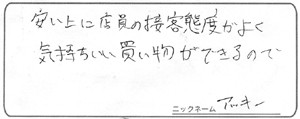 安い上に店員の接客態度がよく
気持ちいい買い物ができるので
ニックネーム アッキー